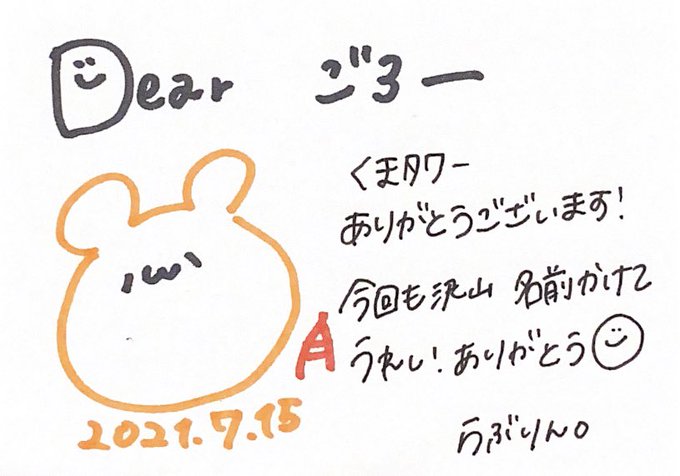 Dear ごろー
くまタワー
ありがとうございます!
今回も沢山 名前かけて
うれしい! ありがとう
2021.7.15
らぶりん。